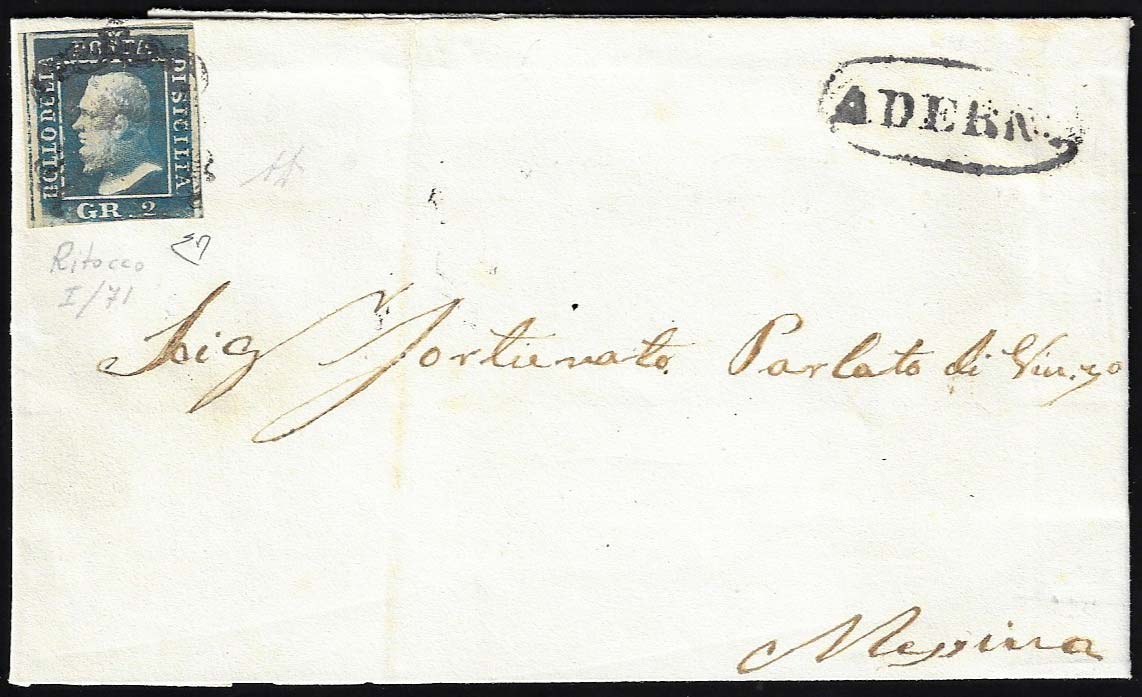 BOLLO DELLA POSTA DI SICILIA
GR. 2
ADERN
Ritocco
I/71
Sig Fortunato Parlato di Vin.zo
Messina